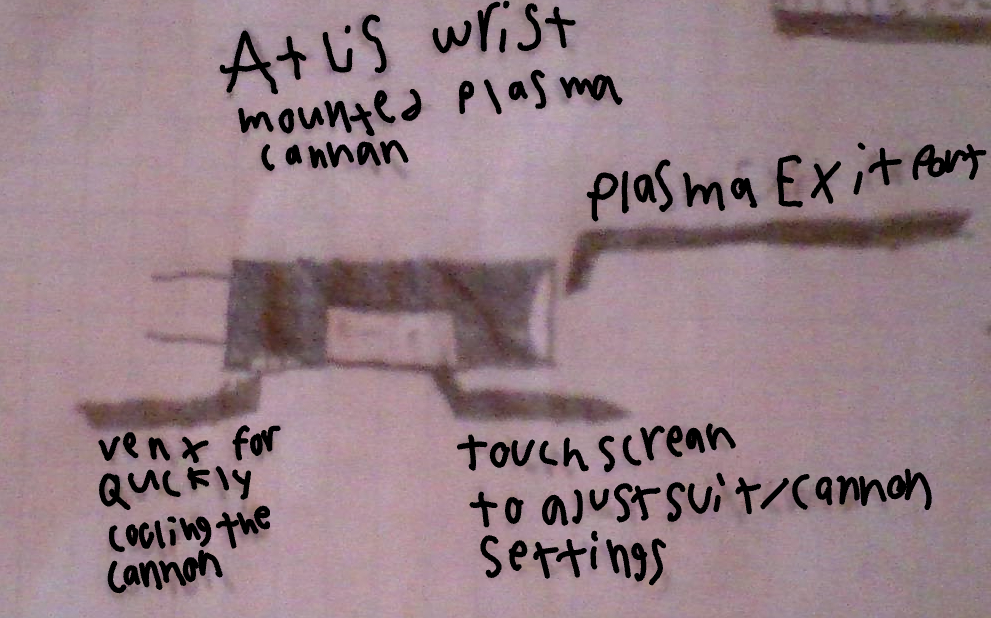 Atlis wrist
mounted plasma
cannan
plasma Exit Port
vent for
Quickly
cooling the
cannon
touch screan
to ajust suit/cannon
settings